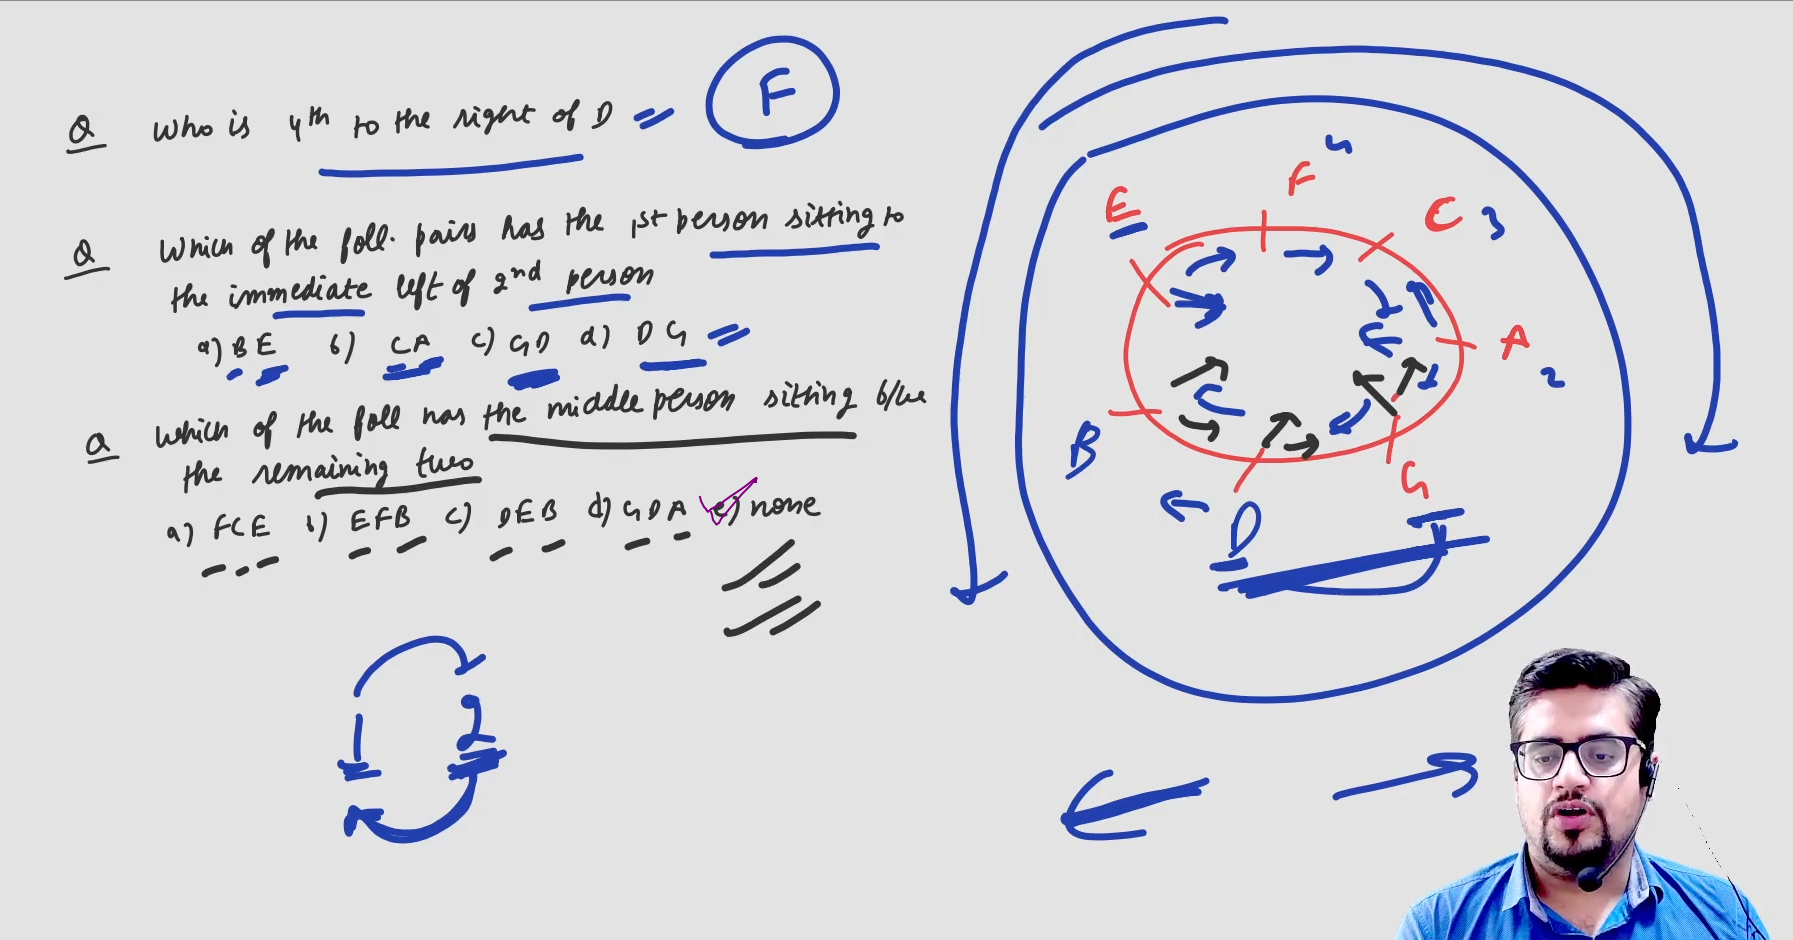 Q Who is 4th to the right of D = F
Q Which of the foll. pairs has the 1st person sitting to
the immediate left of 2nd person
a) B E b) CA c) GD d) D G =
Q Which of the foll has the middle person sitting b/w
the remaining two
a) FCE b) EFB c) DEB d) GDA e) none
F 4
E
C 3
A 2
B
G 1
D
1 2